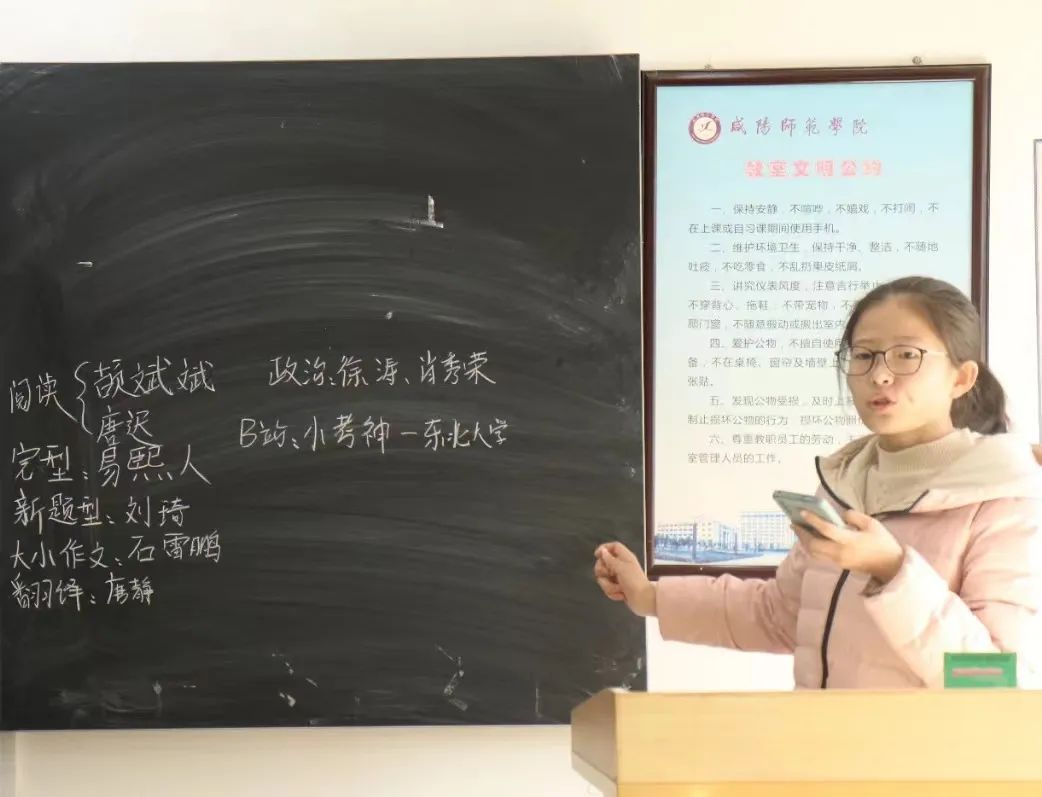 阅读{颉斌斌
唐迟
完型:易熙人
新题型:刘琦
大小作文:石雷鹏
翻译:唐静
政治:徐涛、肖秀荣
B站:小考神一东北大学
咸陽師範學院
教室文明公约
一、保持安静,不喧哗,不嬉戏,不打闹,不
在上课或自习课期间使用手机。
二、维护环境卫生,保持干净、整洁,不随地
吐痰,不吃零食,不乱扔果皮纸屑。
三、讲究仪表风度,注意言行举止
不穿背心、拖鞋,不带宠物,不
踢门窗,不随意搬动或搬出室内
四、爱护公物,不擅自使用
备,不在桌椅、窗帘及墙壁上
张贴。
五、发现公物受损,及时上报
制止损坏公物的行为 损坏公物照价
六、尊重教职员工的劳动,
室管理人员的工作。